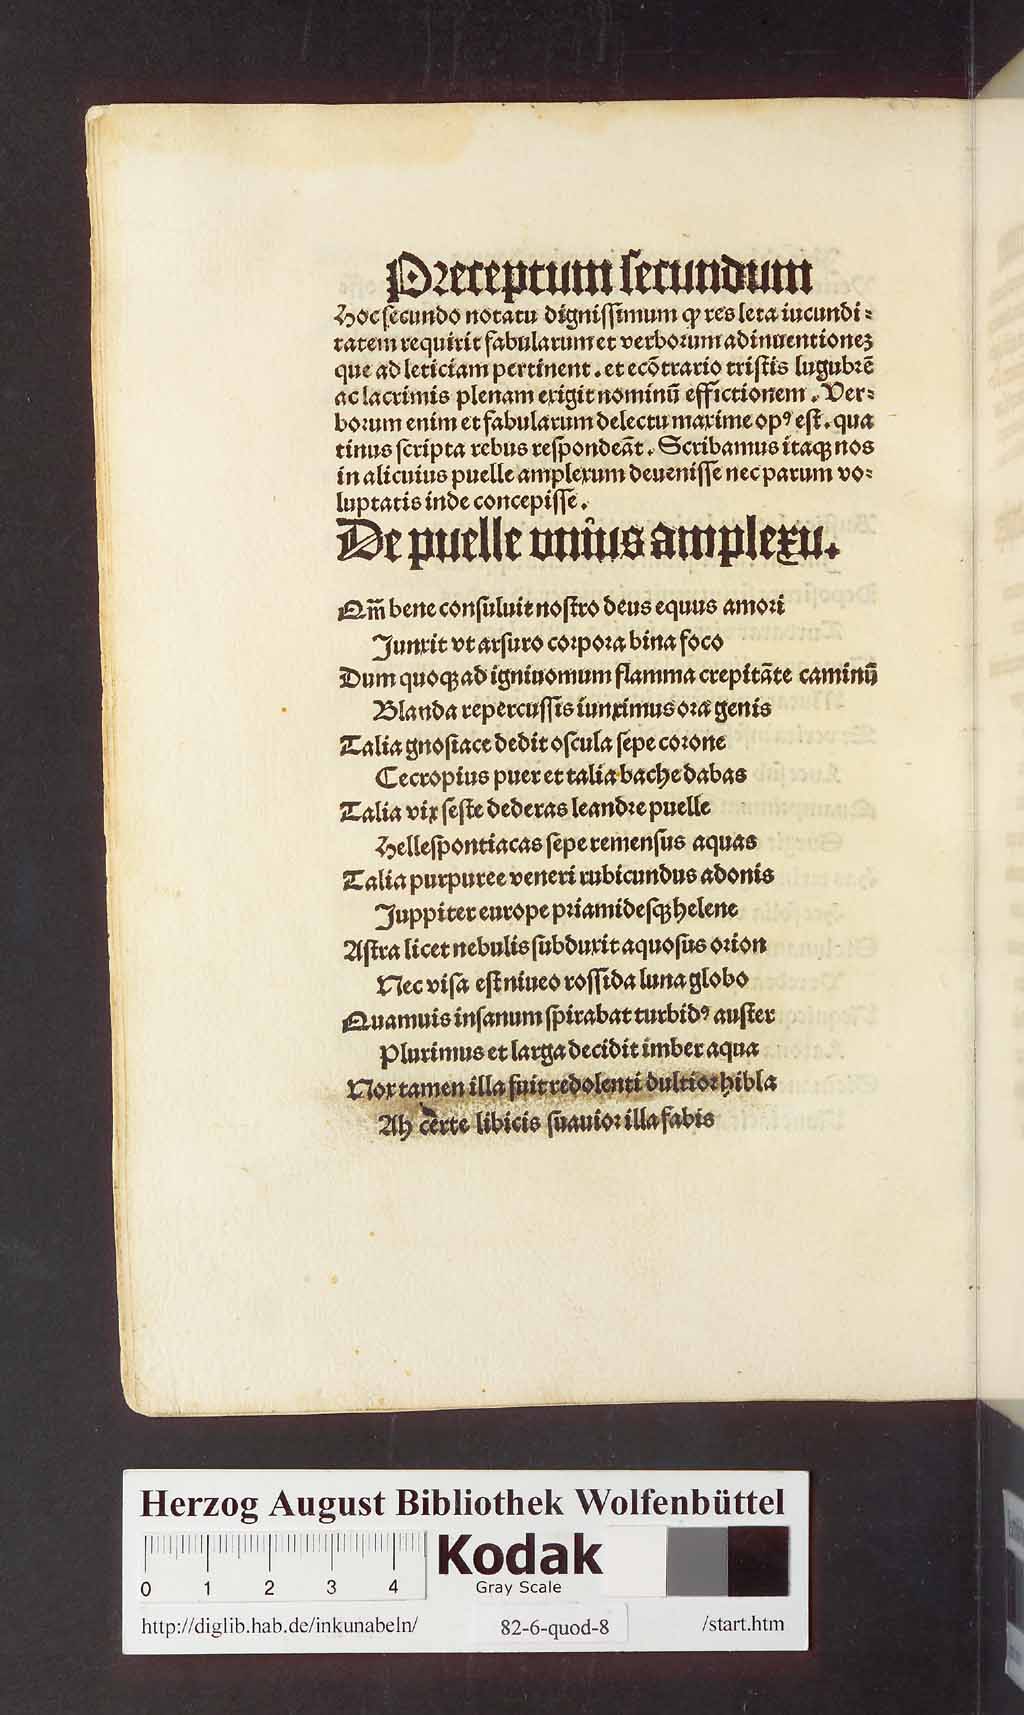 Preceptum secundum
Hoc secundo notatu dignissimum ꝙ res leta iucundi⸗
tatem requirit fabularum et verborum adinuentioneꝫ
que ad leticiam pertinent. et ecōtrario tristis lugubrē
ac lacrimis plenam exigit nominū effictionem. Ver⸗
borum enim et fabularum delectu maxime opꝰ est. qua
tinus scripta rebus respondeāt. Scribamus itaqꝫ nos
in alicuius puelle amplexum deuenisse nec parum vo⸗
luptatis inde concepisse.
De puelle vnius amplexu.
Qm̄ bene consuluit nostro deus equus amori
Junxit vt arsuro corpora bina foco
Dum quoqꝫ ad igniuomum flamma crepitāte caminū
Blanda repercussis iunximus ora genis
Talia gnosiace dedit oscula sepe corone
Cecropius puer et talia bache dabas
Talia vix seste dederas leandre puelle
Hellespontiacas sepe remensus aquas
Talia purpuree veneri rubicundus adonis
Juppiter europe priamidesqꝫ helene
Astra licet nebulis subduxit aquosus orion
Nec visa est niueo rossida luna globo
Quamuis insanum spirabat turbidꝰ auster
Plurimus et larga decidit imber aqua
Nox tamen illa fuit redolenti dultior hibla
Ah certe libicis suauior illa fabis
Herzog August Bibliothek Wolfenbüttel
0 1 2 3 4
Kodak
Gray Scale
http://diglib.hab.de/inkunabeln/ 82-6-quod-8 /start.htm